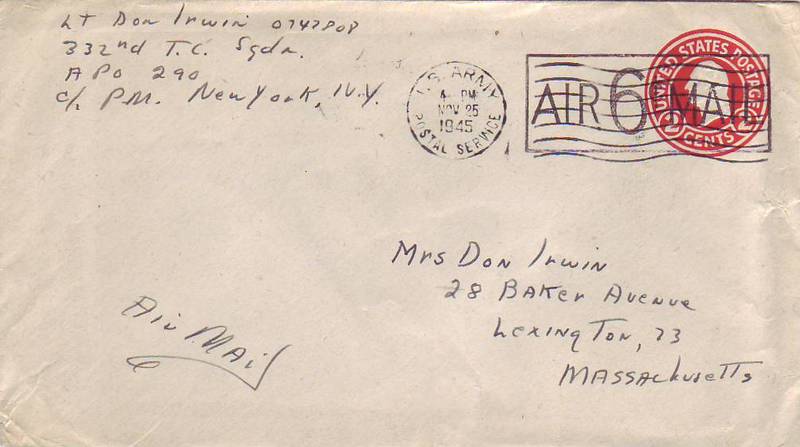 Lt Don Irwin 0747808
332nd T.C. Sqdn.
A PO 290
c/o P.M. New York, N.Y.
U.S. ARMY
PM
NOV 25
1945
POSTAL SERVICE
AIR 6¢ MAIL
UNITED STATES POSTAGE
2 CENTS 2
Mrs Don Irwin
28 Baker Avenue
Lexington, 73
Massachusetts
Air Mail